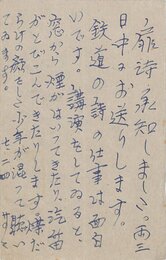 扉詩承知しました。両三
日中にお送りします。
鉄道の詩の仕事は面白
いです。講演をしてゐると、
窓から煙がはいってきたり、汽笛
がとびこんできたりします。煤だ
らけの顔をした
てゐます。
七、二四